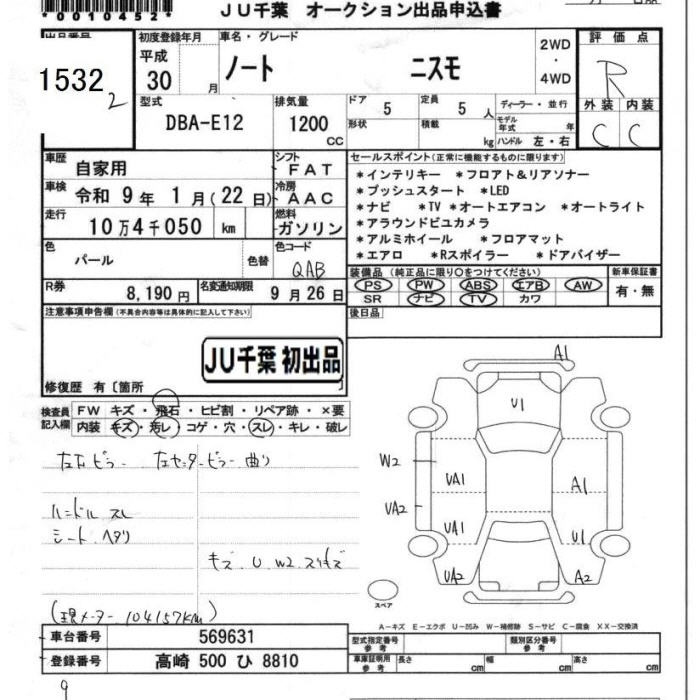 *0010452*
JU千葉 オークション出品申込書
出品番号
1532
2
初度登録年月
平成
30 月
車名・グレード
ノート ニスモ
2WD
・
4WD
評価点
R
外装 内装
C C
型式
DBA-E12
排気量
1200
CC
ドア 5
定員 5 人
形状
積載 kg
ディーラー・並行
モデル年式 年
ハンドル 左・右
車歴 自家用
シフト FAT
車検 令和 9年 1月(22日)
冷房 AAC
走行 10万4千050 km
燃料 ガソリン
色 パール 色替
色コード QAB
R券 8,190円
名変通知期限 9月26日
セールスポイント(正常に機能するものに限ります)
*インテリキー *フロアト&リアソナー
*プッシュスタート *LED
*ナビ *TV *オートエアコン *オートライト
*アラウンドビユカメラ
*アルミホイール *フロアマット
*エアロ *Rスポイラー *ドアバイザー
装備品(純正品に限り○をつけてください)
PS PW ABS エアB AW
SR ナビ TV カワ
新車保証書
有・無
後日品
注意事項申告欄(不具合内容等は具体的に記入して下さい)
JU千葉 初出品
修復歴 有〔箇所
検査員記入欄
FW キズ・飛石・ヒビ割・リペア跡・×要
内装 キズ・汚レ・コゲ・穴・スレ・キレ・破レ
左右ピラー 左センターピラー曲り
ハンドル スレ
シート ヘタリ
キズ U W2 スリキズ
(現メーター 104157km)
A1
U1
W2
UA1
A1
UA2
UA1
U1
UA2
A2
スペア
A-キズ E-エクボ U-凹み W-補修跡 S-サビ C-腐食 XX-交換済
車台番号 569631
登録番号 高崎 500 ひ 8810
型式指定番号 参考
類別区分番号 参考
車庫証明用 参考 長さ cm 幅 cm 高さ cm
9